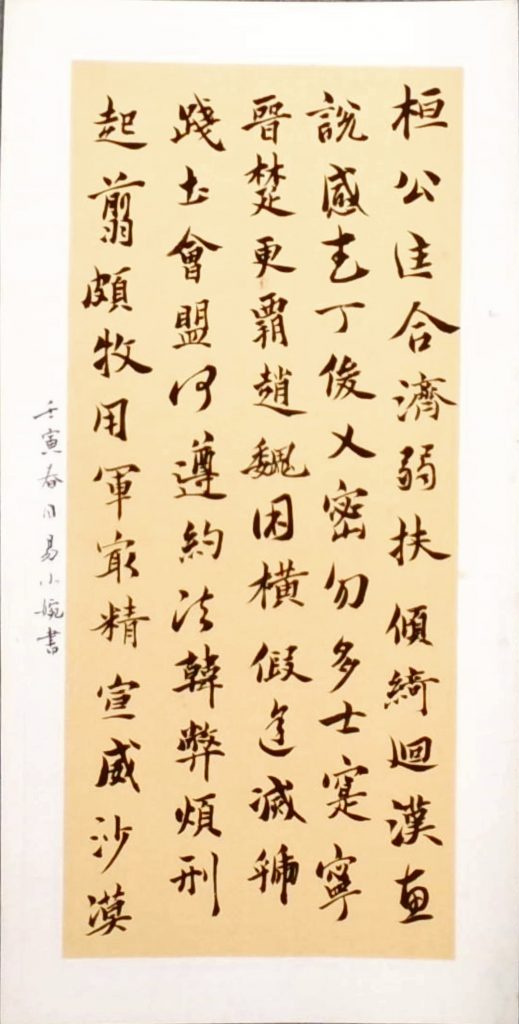 桓公匡合濟弱扶傾綺迴漢惠
說感武丁俊乂密勿多士寔寧
晉楚更霸趙魏困橫假途滅虢
踐土會盟何遵約法韓弊煩刑
起翦頗牧用軍冣精宣威沙漠
壬寅春日易小婉書